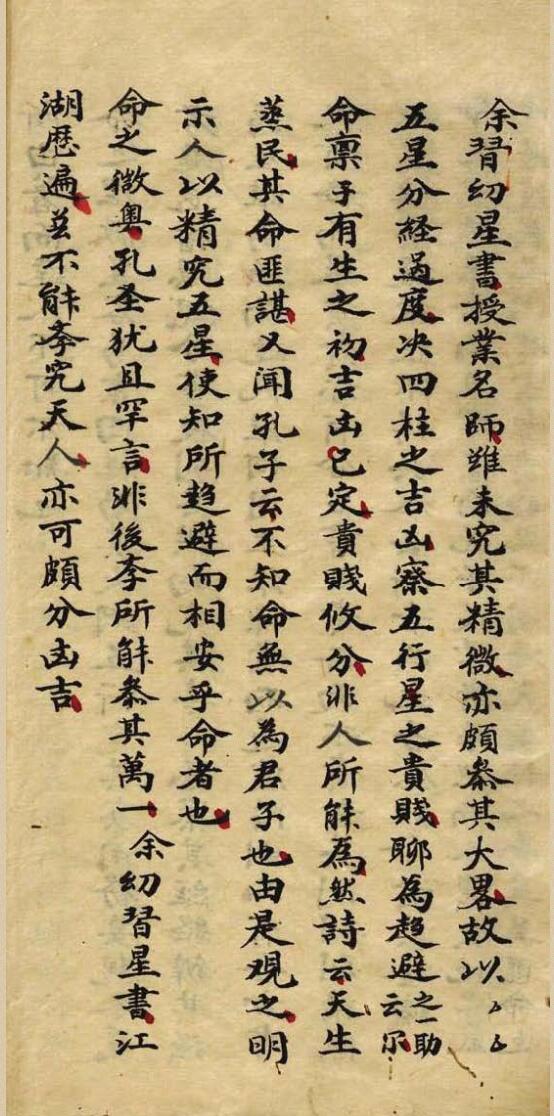 余習幼星書授業名師雖未究其精微亦頗叅其大畧故以
五星分経過度决四柱之吉凶察五行星之貴賤聊為趋避之一助云尔
命禀于有生之初吉凶已定貴賤攸分非人所能為然詩云天生
蒸民其命匪諶又聞孔子云不知命無以為君子也由是观之明
示人以精究五星使知所趋避而相安乎命者也
命之微奥孔圣犹且罕言非後李所能叅其萬一余幼習星書江
湖歴遍並不能李究天人亦可頗分凶吉